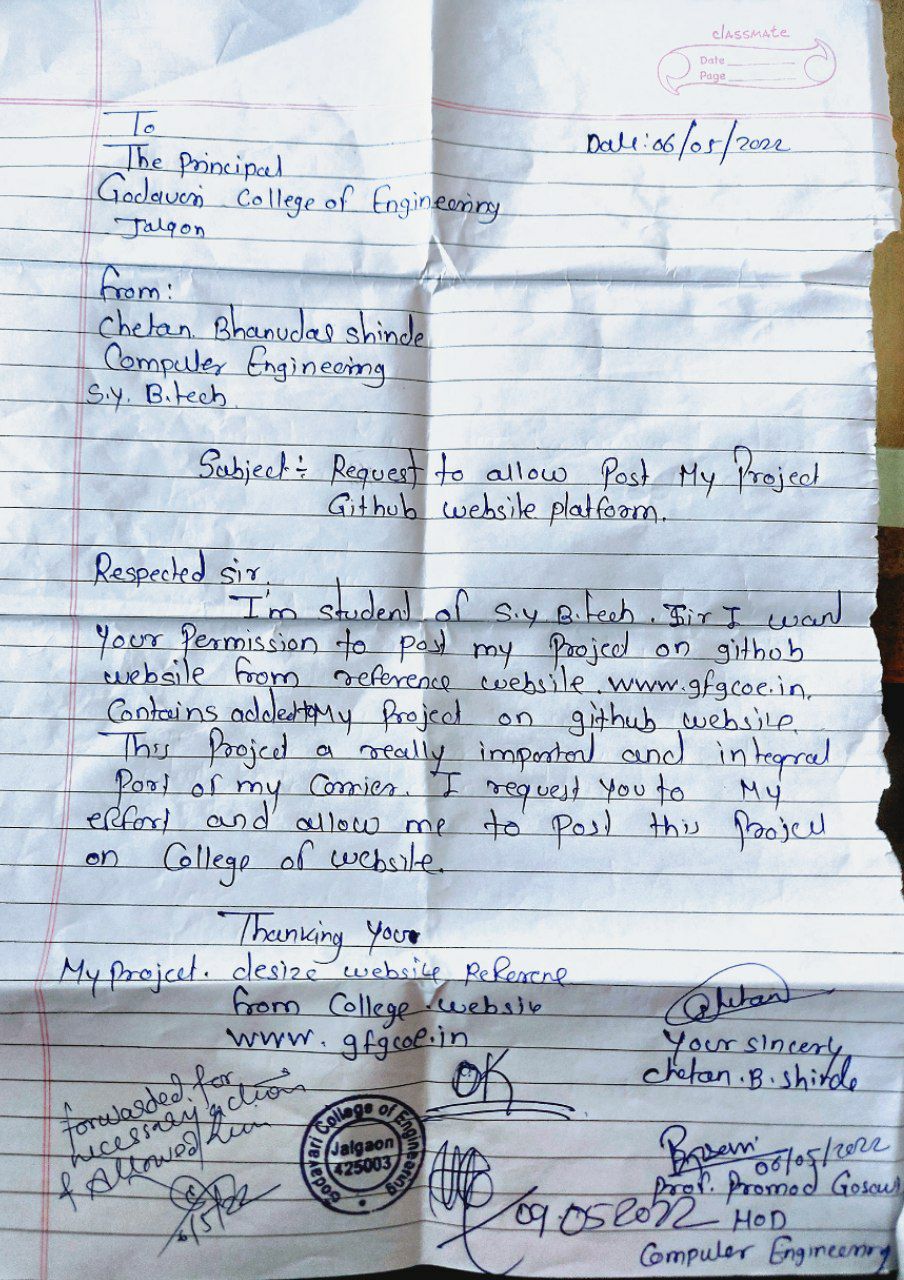 classmate
Date
Page
To
Date: 06/05/2022
The Principal
Godavari College of Engineering
Jalgon
from:
Chetan. Bhanudas shinde
Computer Engineering
S.y. B.tech
Subject:- Request to allow Post My Project
Github website platform.
Respected sir.
I'm student of S.y B.tech. Sir I want
your Permission to post my Project on github
website from reference website.www.gfgcoe.in.
Contains added to My Project on github website.
This Project a really important and integral
Part of my Carrier. I request you to My
effort and allow me to Post this Project
on College of website.
Thanking you
My project. desize website Referene
from College website
www.gfgcoe.in
Chetan
Your sincerly
Chetan.B.shinde
forwarded for
necessary action
& Allowed him
6/5/22
OK
Godavari College of Engineering
Jalgaon
425003
09.052022
06/05/2022
Prof. Promod Gosavi
HOD
Computer Engineering